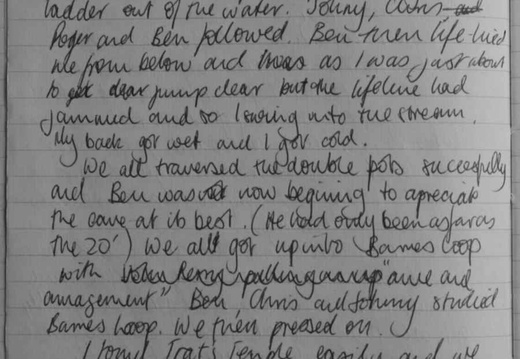 ladder out of the water. Johny, Chris and
Roger and Ben followed. Ben then life-lined
me from below and as I was just about
to get clear jump clear but the lifeline had
jammed and so leaning into the stream.
My back got wet and I got cold.
We all traversed the double pots successfully
and Ben was now begining to apreciate
the cave at its best. (He had only been as far as
the 20') We all got up into Barnes Loop
with "awe and
amagement" Ben, Chris and Johnny studied
Barnes Loop. We then pressed on.
I found Trat's Temple easily and we